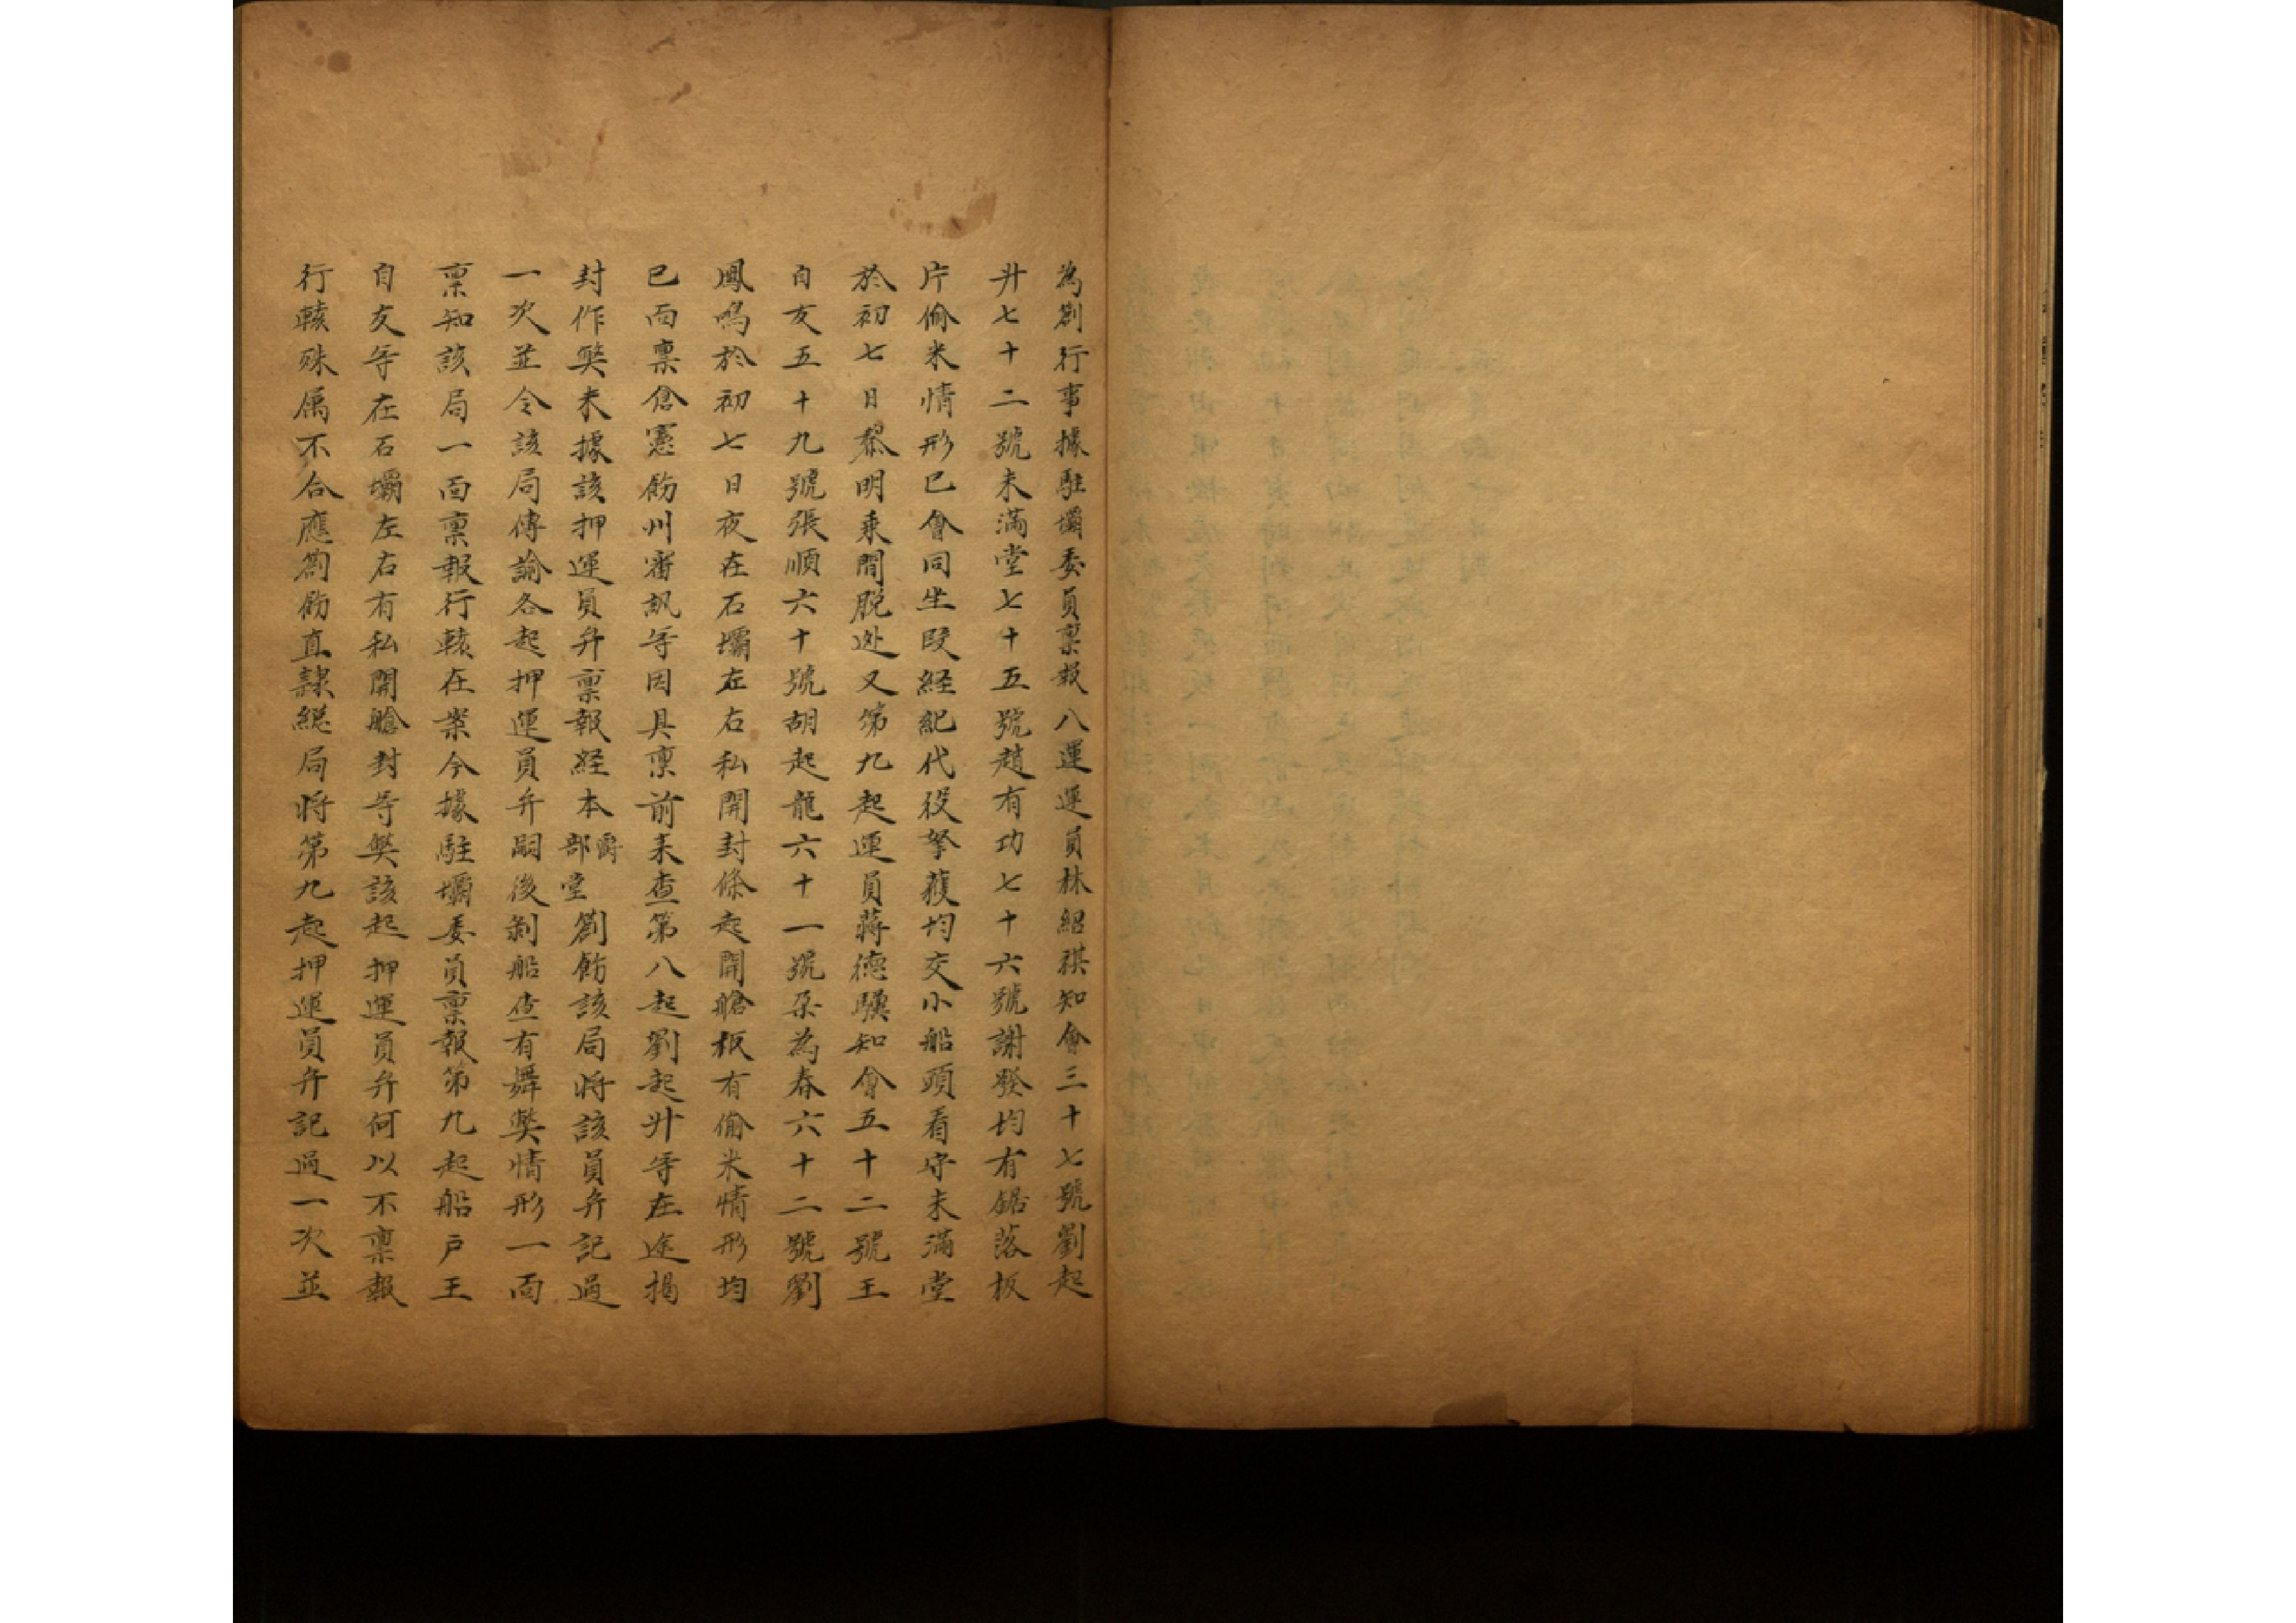 為劄行事據駐壩委員稟報八運運員林紹祺知會三十七號劉起
升七十二號未滿堂七十五號趙有功七十六號謝發均有鋸落板
片偷米情形已會同生叚経紀代役拏獲均交小船頭看守未滿堂
於初七日黎明乘間脱逃又第九起運員蔣德驥知會五十二號王
自友五十九號張順六十號胡起龍六十一號朶為春六十二號劉
鳳鳴於初七日夜在石壩左右私開封條起開艙板有偷米情形均
已面稟倉憲飭州審訊等因具稟前来查第八起劉起升等在途揭
封作獘未據該押運員弁稟報経本爵部堂劄飭該局將該員弁記過
一次並令該局傳諭各起押運員弁嗣後剝船查有舞獘情形一面
稟知該局一面稟報行轅在案今據駐壩委員稟報第九起船户王
自友等在石壩左右有私開艙封等獘該起押運員弁何以不稟報
行轅殊属不合應劄飭直隷総局將第九起押運員弁記過一次並